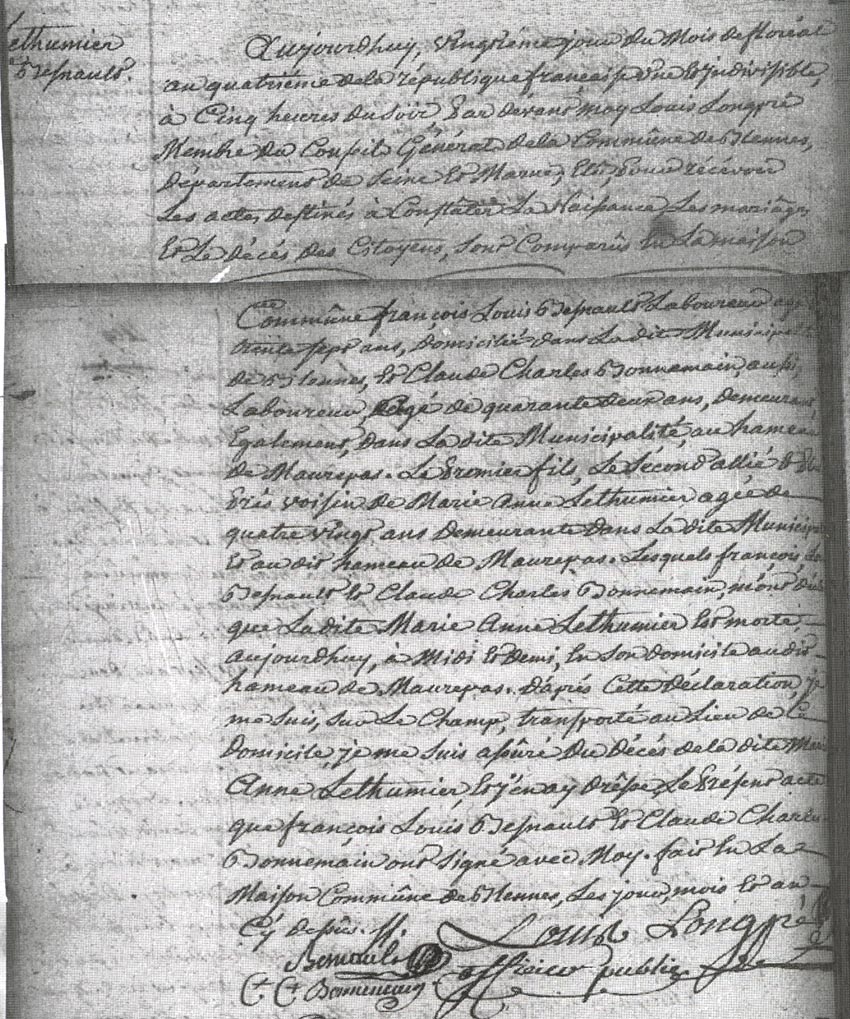 Lethumier
Besnault.
Aujourdhuy, vingtiéme jour du Mois de floréal
an quatriéme de la république française une et jndivisible,
à Cinq heures du soir Par devant moy Louis Longpré
Membre du Conseil Général de la Commûne de Blennes,
Département de Seine et Marne, Elû, pour récévoir
Les actes destinés à Constater La Naissance Les mariâges
Et Le décés des Citoyens, sont Comparûs En La maison
Commûne françois Louis Besnault Laboureur agé
trente sept ans, Domicilié dans La dite Municipalité
de Blennes, Et Claude Charles Bonnemain, aussi
Laboureur, agé de quarante deux ans, demeurant
Egalement, dans La dite Municipalité, au hameau
de Maurepas. Le Premier fils, Le Sécond allié &
Prés voisin de Marie Anne Lethumier agée de
quatre vingt ans Demeurante Dans La dite Municip
Et au dit hameau de Maurepas. Lesquels françois
Besnault Et Claude Charles Bonnemain, m'ont
que La dite Marie Anne Lethumier Est morte,
aujourdhuy, à Midi Et Demi, En Son domicile audit
hameau de Maurepas. D'aprés Cette Déclaration, je
me suis, sur Le Champ, transporté au Lieu de Ce
Domicile, je me suis assûré Du Décés de la dite Marie
Anne Lethumier, Et j'en ay Drêssé, Le Présent acte
que françois Louis Besnault Et Claude Charles
Bonnemain ont Signé avec Moy. fait En La
Maison Commûne de Blennes, Les jour, mois Et an
Cy dessûs.
Louis Longpré
Besnault officier public
C. C. Bonnemain